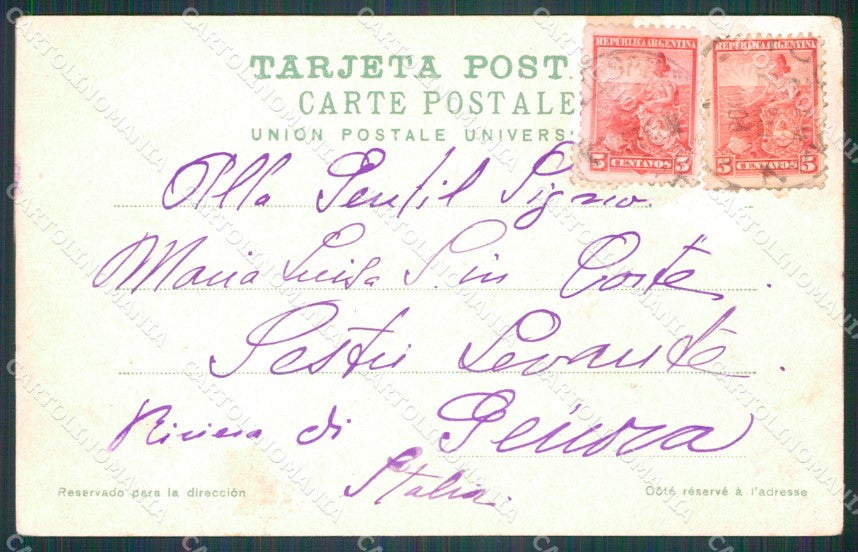 TARJETA POST
CARTE POSTALE
UNION POSTALE UNIVERS
REPUBLICA ARGENTINA
5 CENTAVOS 5
REPUBLICA ARGENTINA
5 CENTAVOS 5
Alla Gentil Signo.
Maria Luisa S. in Corte.
Sestri Levante.
Riviera di Genova
Italia.
Reservado para la dirección
Côté réservé à l'adresse
CARTOLINOMANIA